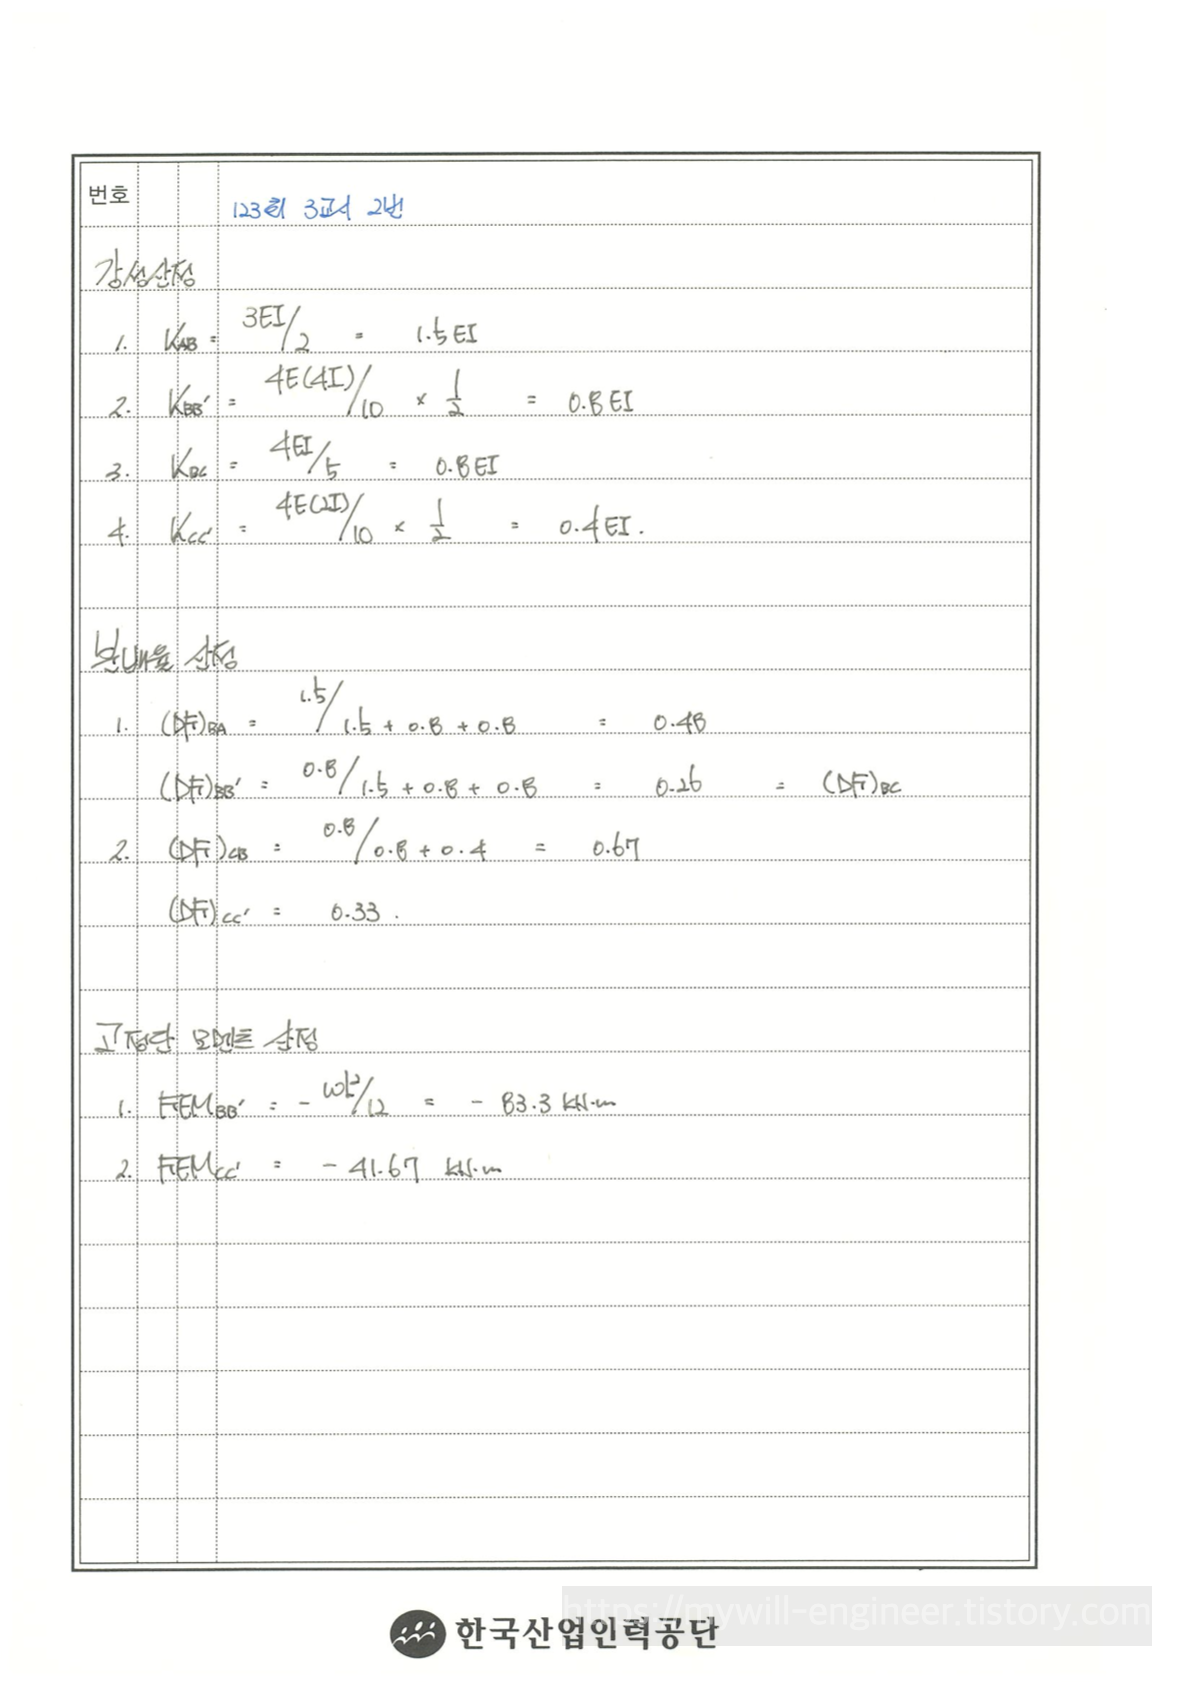 번호
123회 3교시 2번
강성산정
1. KAB = 3EI/2 = 1.5EI
2. KBB' = 4E(4I)/10 × 1/2 = 0.8EI
3. KBC = 4EI/5 = 0.8EI
4. KCC' = 4E(2I)/10 × 1/2 = 0.4EI.
분배율 산정
1. (DF)BA = 1.5/1.5 + 0.8 + 0.8 = 0.48
(DF)BB' = 0.8/1.5 + 0.8 + 0.8 = 0.26 = (DF)BC
2. (DF)CB = 0.8/0.8 + 0.4 = 0.67
(DF)CC' = 0.33.
고정단 모멘트 산정
1. FEMBB' = - wl²/12 = - 83.3 kN·m
2. FEMCC' = - 41.67 kN·m
https://mywill-engineer.tistory.com
한국산업인력공단